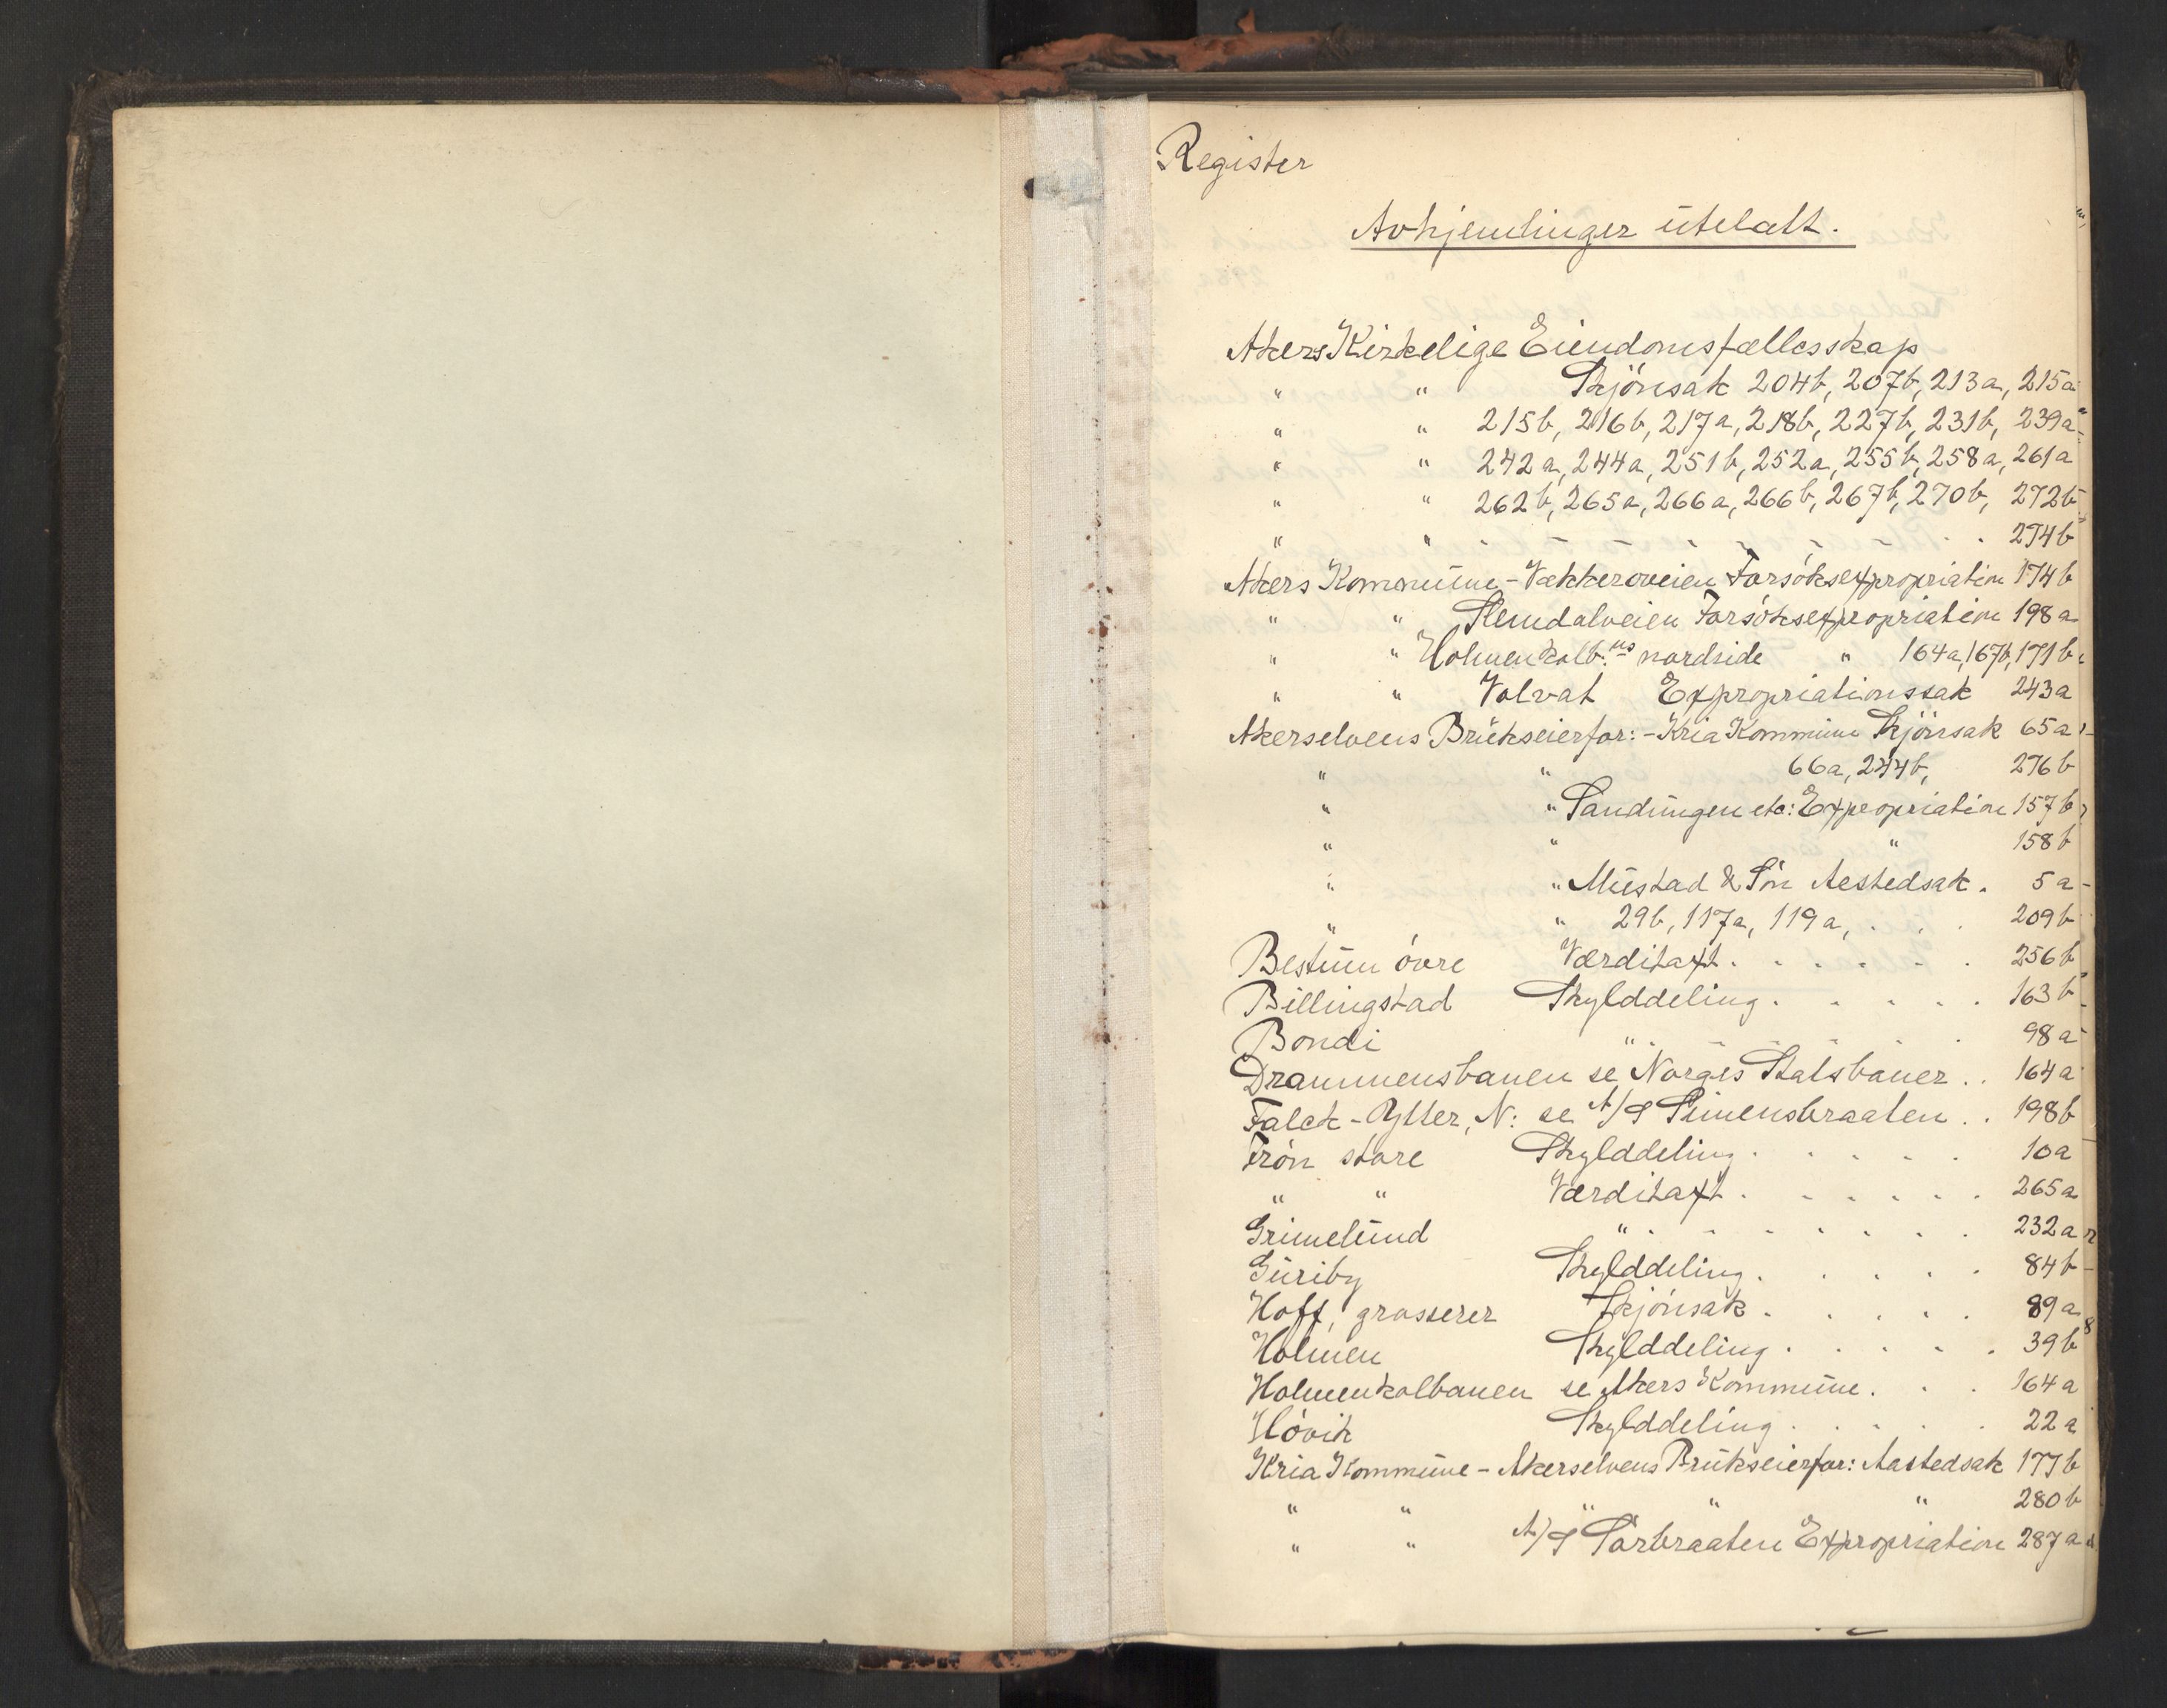 Register
Avhjemlinger utelatt.
Akers Kirkelige Eiendomsfællesskap
" " Skjønsak 204b, 207b, 213a, 215a
" " 215b, 216b, 217a, 218b, 227b, 231b, 239a
" " 242a, 244a, 251b, 252a, 255b, 258a, 261a
" " 262b, 265a, 266a, 266b, 267b, 270b, 272b
" " 274b
Akers Kommune - Vækkerøveien Forsøksexpropriation 174b
" " Slemdalveien Forsøksexpropriation 198a
" " Holmenkolb:ns nordside " 164a, 167b, 171b
" " Volvat Expropriationssak 243a
Akerselvens Brukseierfor: - Kria Kommune Skjönsak 65a
" " 66a, 244b, 276b
" " Sandungen etc: Expropriation 157b
" " " 158b
" " Mustad & Søn Aastedsak. 5a
" " 29b, 117a, 119a, . . . 209b
Bestum övre Værditaxt . . . . . . 256b
Billingstad Skylddeling . . . . . 163b
Bondi " . . . . . 98a
Drammensbanen se Norges Statsbaner . . 164a
Falck-Ytter, N: se A/S Simensbraaten . . 198b
Frøn store Skylddeling . . . . . 10a
" " Værditaxt . . . . . . 265a
Grimelund " . . . . . . . 232a
Guriby Skylddeling . . . . . 84b
Hoff, grosserer Skjönsak . . . . . 89a
Holmen Skylddeling . . . . . 39b
Holmenkolbanen se Akers Kommune . . . 164a
Hövik Skylddeling . . . . . 22a
Kria Kommune - Akerselvens Brukseierfor: Aastedsak 177b
" " " " " 280b
" " A/S Sørbraaten Expropriation 287a